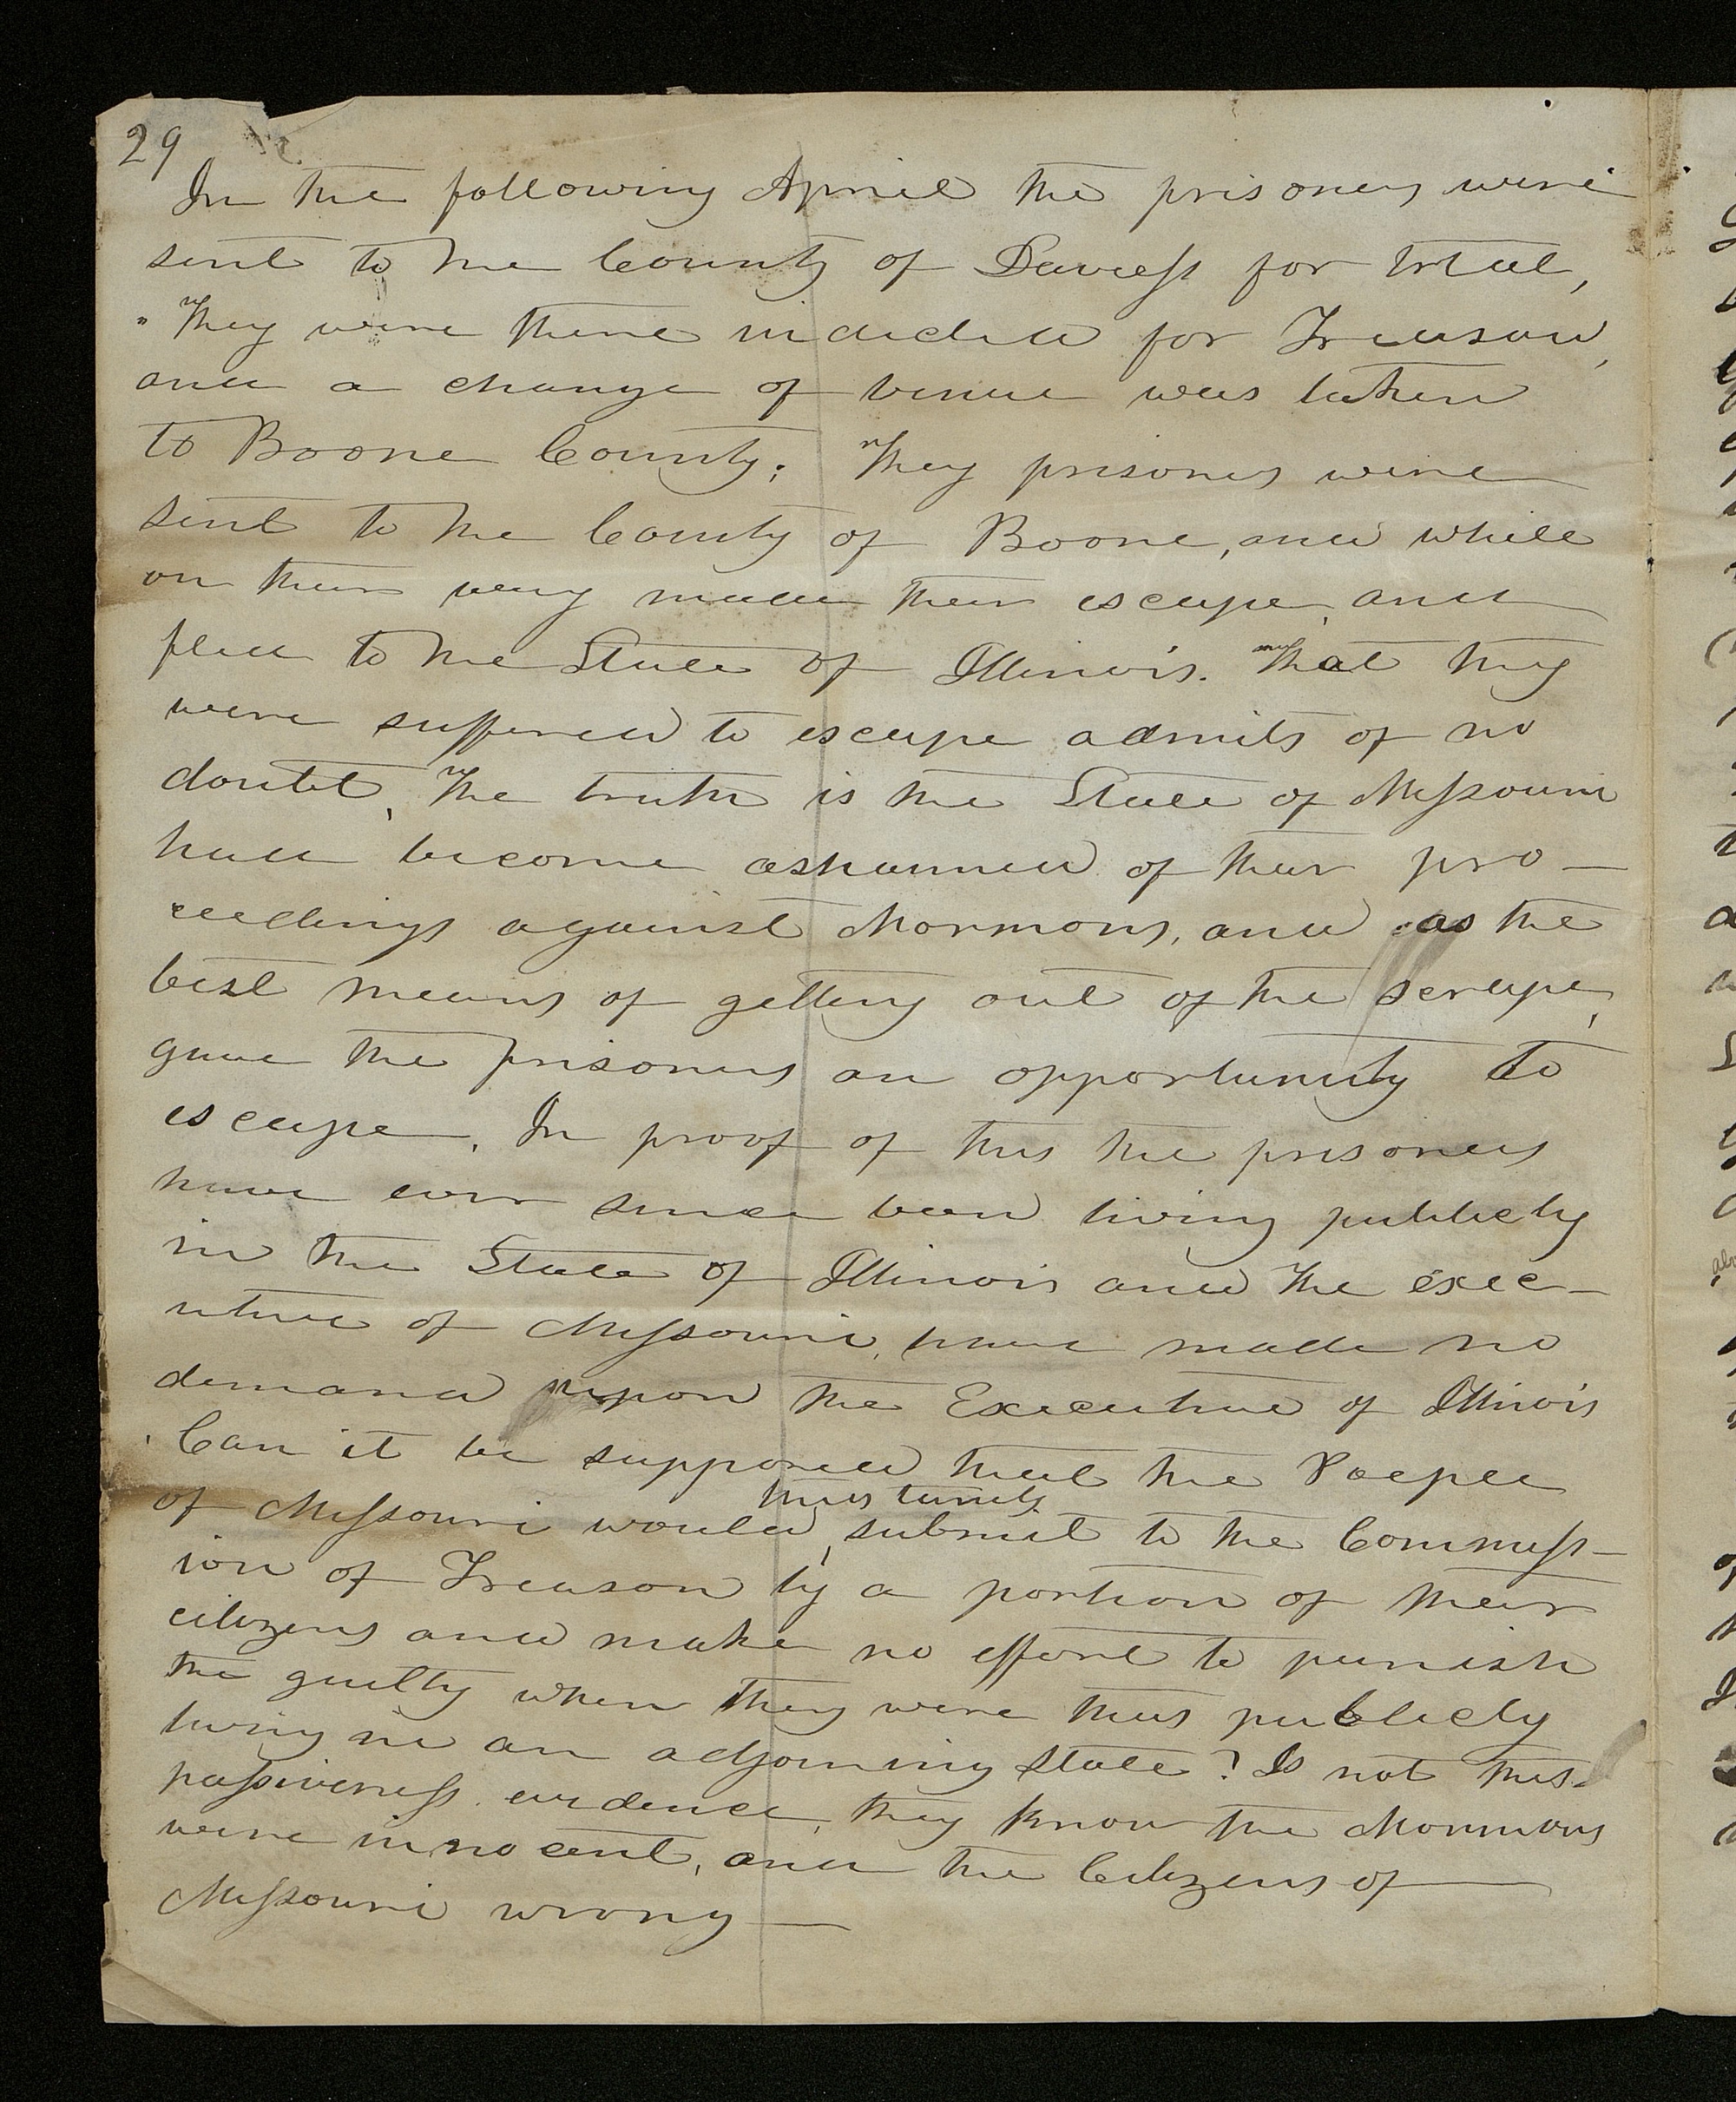 29
In the following April the prisoners were
sent to the County of Daviess for trial,
They were there indicted for Treason,
and a change of venue was taken
to Boone County; They prisoners were
sent to the County of Boone, and while
on their way made their escape, and
fled to the State of Illinois. That they
were suffered to escape admits of no
doubt, The truth is the State of Missouri
had become ashamed of their pro—
ceedings against Mormons, and as the
best means of getting out of the scrape,
gave the prisoners an opportunity to
escape. In proof of this the prisoners
have ever since been living publicly
in the State of Illinois and the exec—
utive of Missouri, have made no
demand upon the Executive of Illinois
Can it be supposed that the People
of Missouri would thus tamely submit to the Commiss—
ion of Treason by a portion of their
citizens and make no effort to punish
the guilty when they were thus publicly
living in an adjoining State? Is not this
passiveness evidence, they know the Mormons
were innocent, and the Citizens of
Missouri wrong —